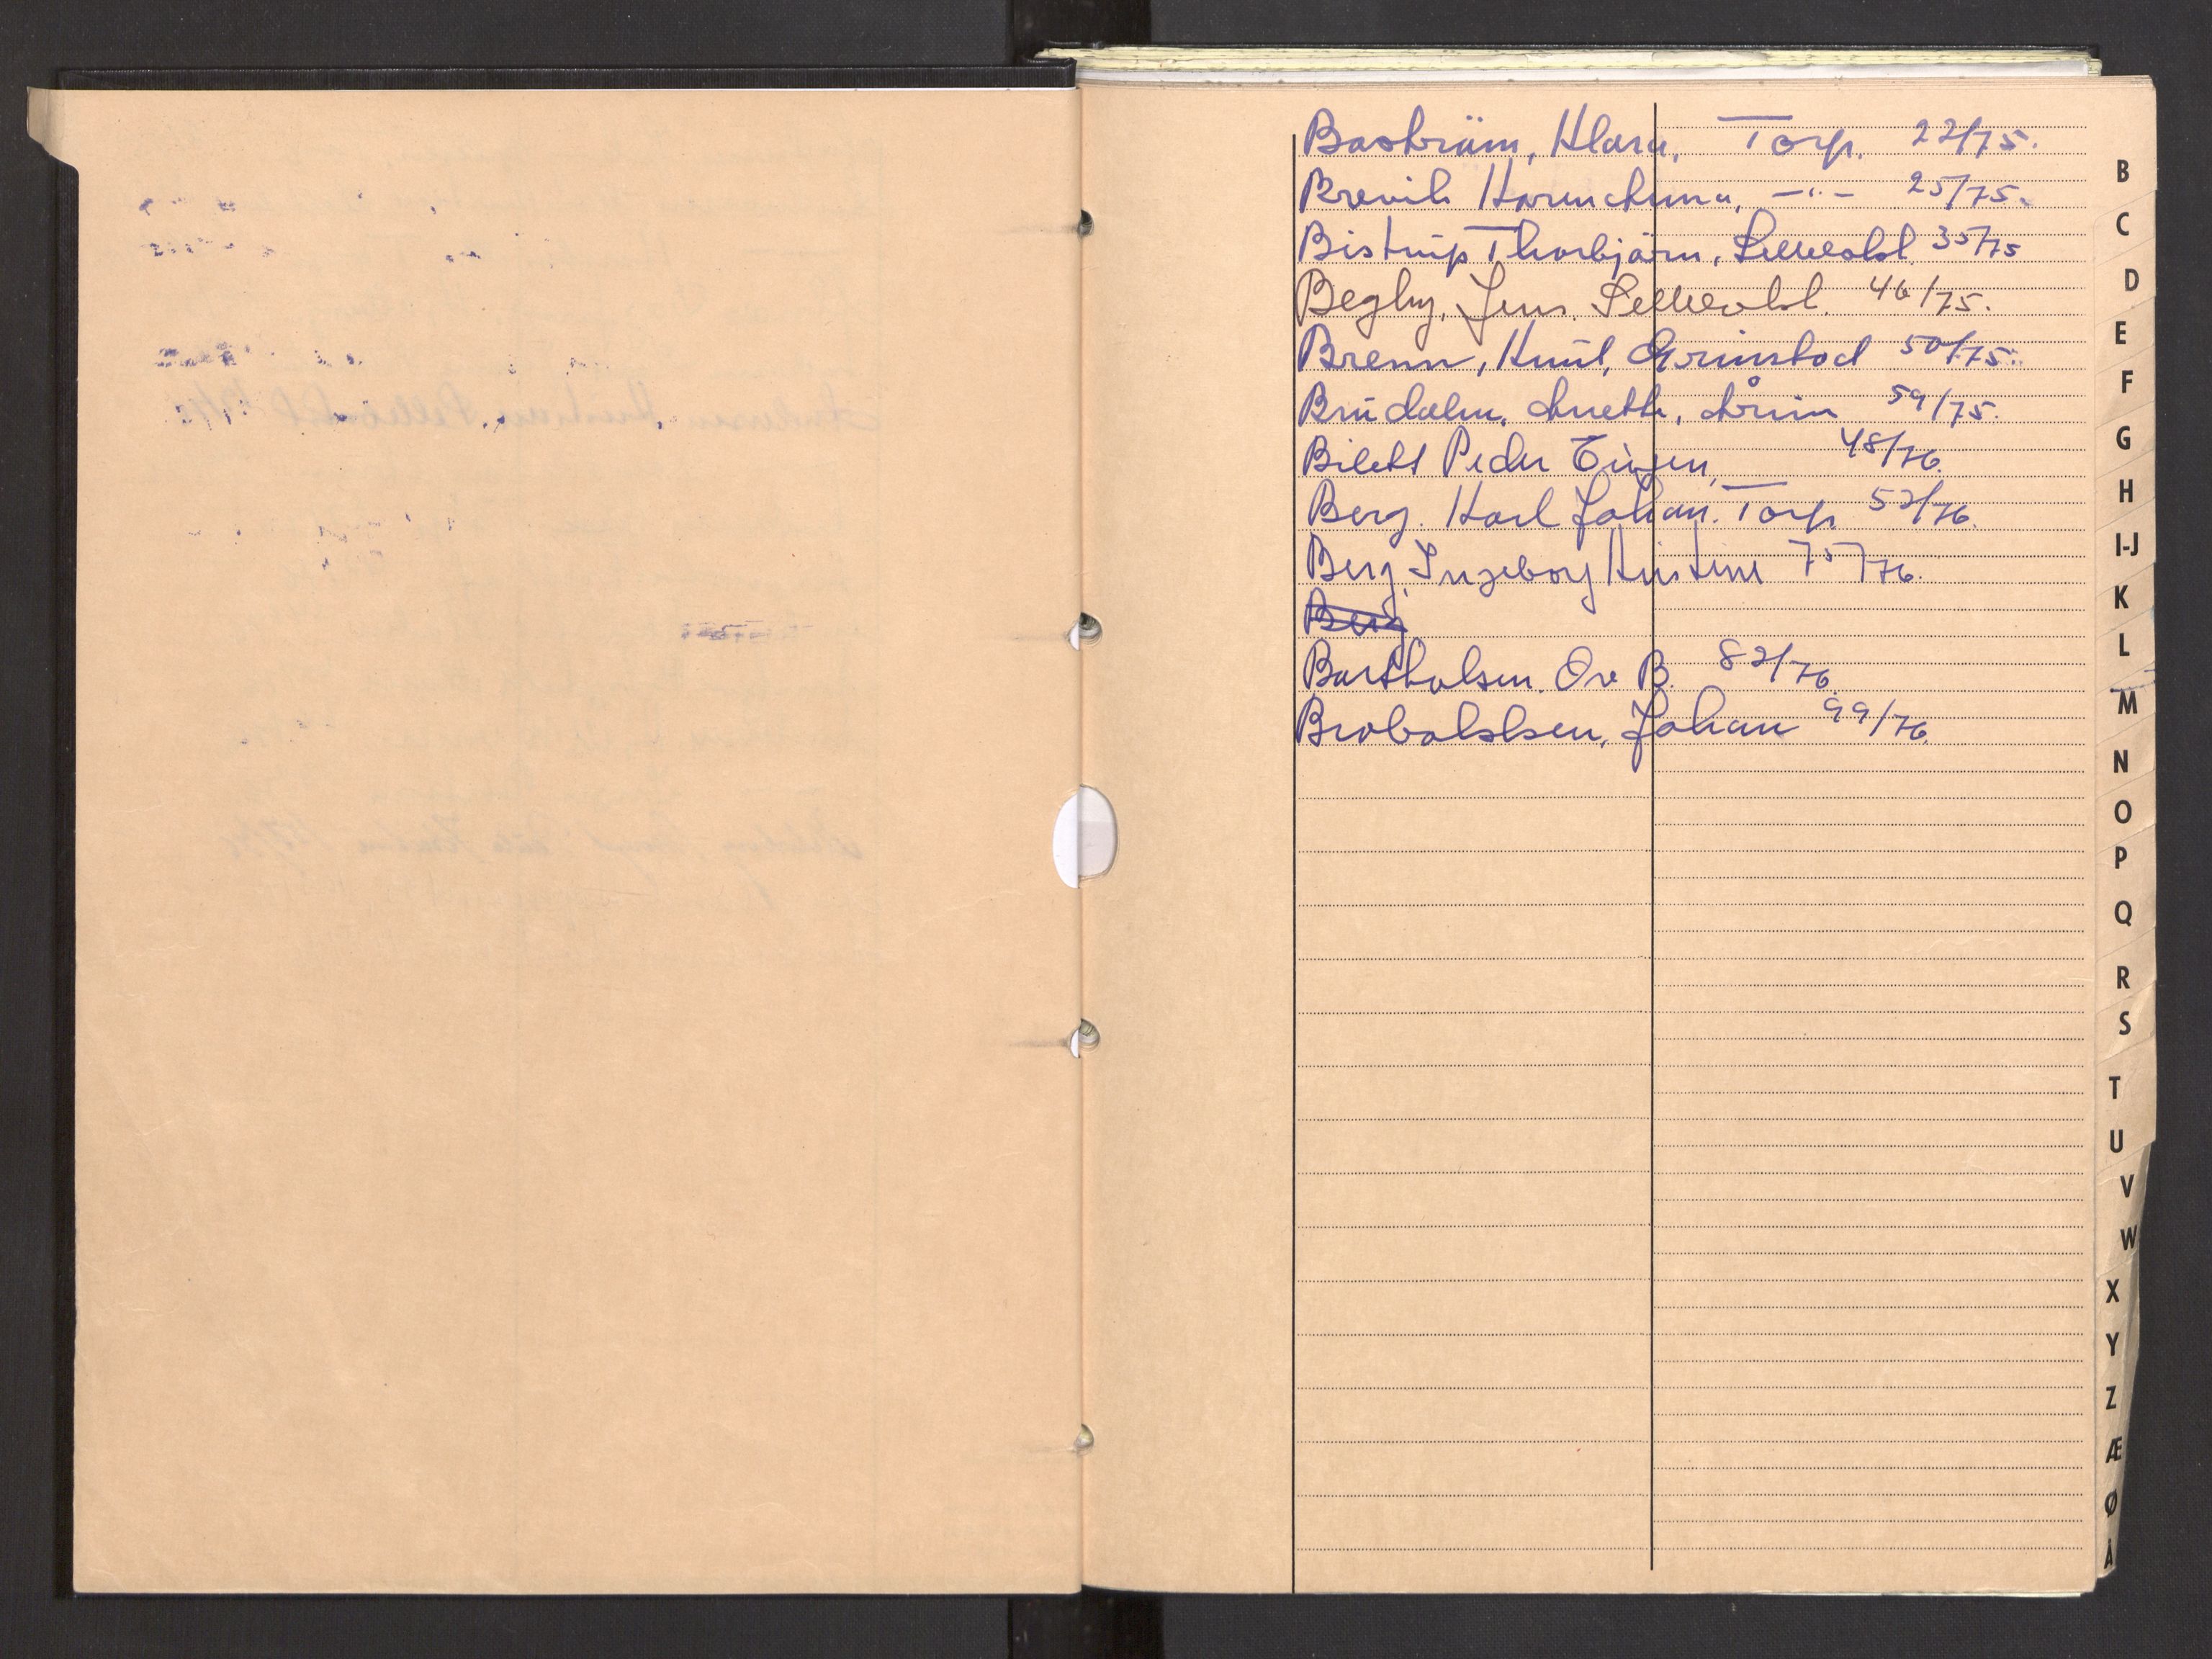 Bastrüm, Klara, Torp. 22/75.
Brevik Karen Anna, -"- 25/75.
Bistrup Thorbjørn, Sellebakk 35/75
Begby, Jens. Sellebakk. 46/75.
Brenn, Knut, Grimstad 50/75.
Brudalen, Anette, Årum 59/75.
Bilett Peder Einsen, 48/76.
Berg. Karl Johan. Torp 52/76.
Berg, Ingeborg Kristine 75/76.
Berg
Bartholsen. Ove B. 82/76.
Brobakken, Johan 99/76.
B
C
D
E
F
G
H
I-J
K
L
M
N
O
P
Q
R
S
T
U
V
W
X
Y
Z
Æ
Ø
Å